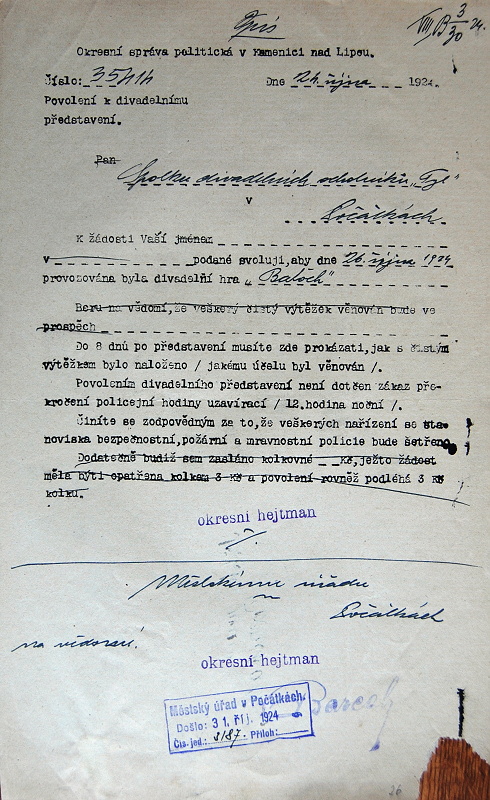 Opis
VIII/B 3/30 24.
Okresní správa politická v Kamenici nad Lipou.
Číslo: 35414
Dne 24. října 1924.
Povolení k divadelnímu
představení.
Pan
Spolku divadelních ochotníků „Tyl“
v
Počátkách
K žádosti Vaší jménem
v podané svoluji, aby dne 26. října 1924
provozována byla divadelní hra „Baloch“
Beru na vědomí, že veškerý čistý výtěžek věnován bude ve
prospěch
Do 8 dnů po představení musíte zde prokázati, jak s čistým
výtěžkem bylo naloženo / jakému účelu byl věnován /.
Povolením divadelního představení není dotčen zákaz pře-
kročení policejní hodiny uzavírací / 12.hodina noční /.
Činíte se zodpovědným za to, že veškerých nařízení se sta-
noviska bezpečnostní, požární a mravnostní policie bude šetřeno.
Dodatečně budiž sem zasláno kolkovné Kč, ježto žádost
měla býti opatřena kolkem 3 Kč a povolení rovněž podléhá 3 Kč
kolku.
okresní hejtman
Městskému úřadu
v
Počátkách
na vědomí.
okresní hejtman
Městský úřad v Počátkách.
Došlo: 31. říj. 1924
Čís. jed.: 3187. Příloh:
26